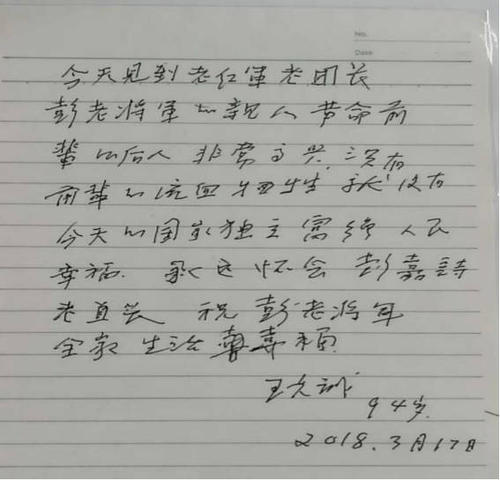 No.
Date
今天见到老红軍老团长
彭老将軍的親人革命前
輩的后人 非常高兴 没有
前輩的流血牺牲 就没有
今天的国家独立富强 人民
幸福. 永远怀念 彭嘉詩
老首长 祝 彭老将军
全家 生活 幸福
94岁.
2018.3月17日